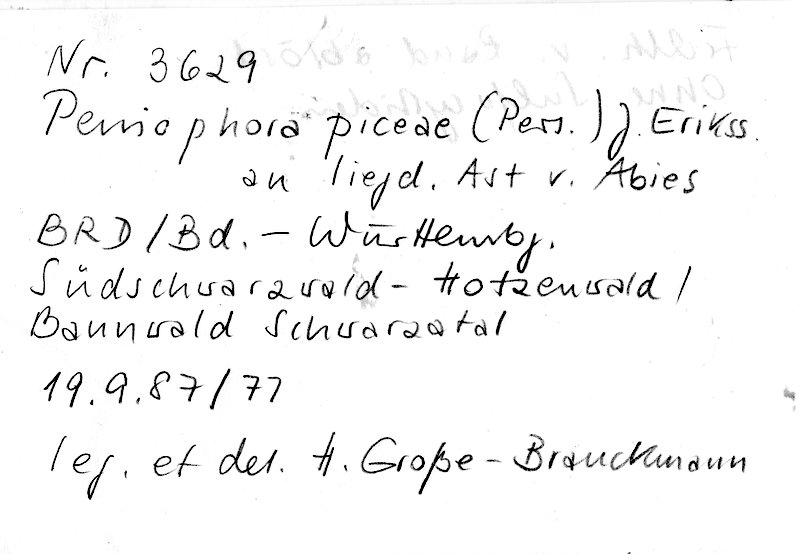 Nr. 3629
Peniophora piceae (Pers.) J. Erikss.
an liegd. Ast v. Abies
BRD/Bd. - Württembg.
Südschwarzwald - Hotzenwald/
Bannwald Schwarzatal
19.9.87/77
leg. et det. H. Große-Brauckmann